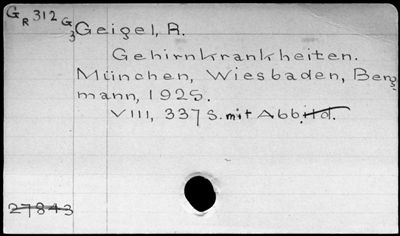 GR 312 G3
Geigel, R.
Gehirnkrankheiten.
München, Wiesbaden, Berg
mann, 1925.
VIII, 337 S. mit Abbild.
27843